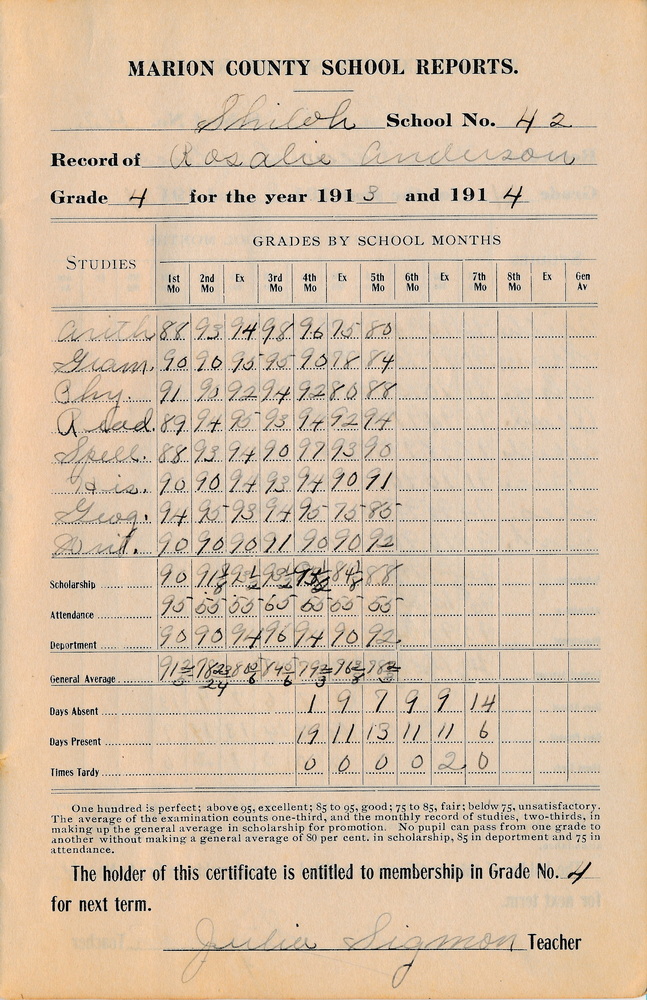 MARION COUNTY SCHOOL REPORTS.
Shiloh School No. 42
Record of Rosalie Anderson
Grade 4 for the year 1913 and 1914
STUDIES
GRADES BY SCHOOL MONTHS
1st Mo 2nd Mo Ex 3rd Mo 4th Mo Ex 5th Mo 6th Mo Ex 7th Mo 8th Mo Ex Gen Av
Arith 88 93 94 98 96 75 80
Gram. 90 90 95 95 90 78 84
Phy. 91 90 92 94 92 80 88
Read. 89 94 95 93 94 92 94
Spell. 88 93 94 90 97 93 90
His. 90 90 94 93 94 90 91
Geog. 94 95 93 94 95 75 85
90 90 90 91 90 90 92
Scholarship 90 88
Attendance 95 55 55 65 55 55 55
Department 90 90 94 96 94 90 92
General Average
Days Absent 1 9 7 9 9 14
Days Present 19 11 13 11 11 6
Times Tardy 0 0 0 0 2 0
One hundred is perfect; above 95, excellent; 85 to 95, good; 75 to 85, fair; below 75, unsatisfactory.
The average of the examination counts one-third, and the monthly record of studies, two-thirds, in
making up the general average in scholarship for promotion. No pupil can pass from one grade to
another without making a general average of 80 per cent. in scholarship, 85 in deportment and 75 in
attendance.
The holder of this certificate is entitled to membership in Grade No. 4
for next term.
Julia Sigmon Teacher